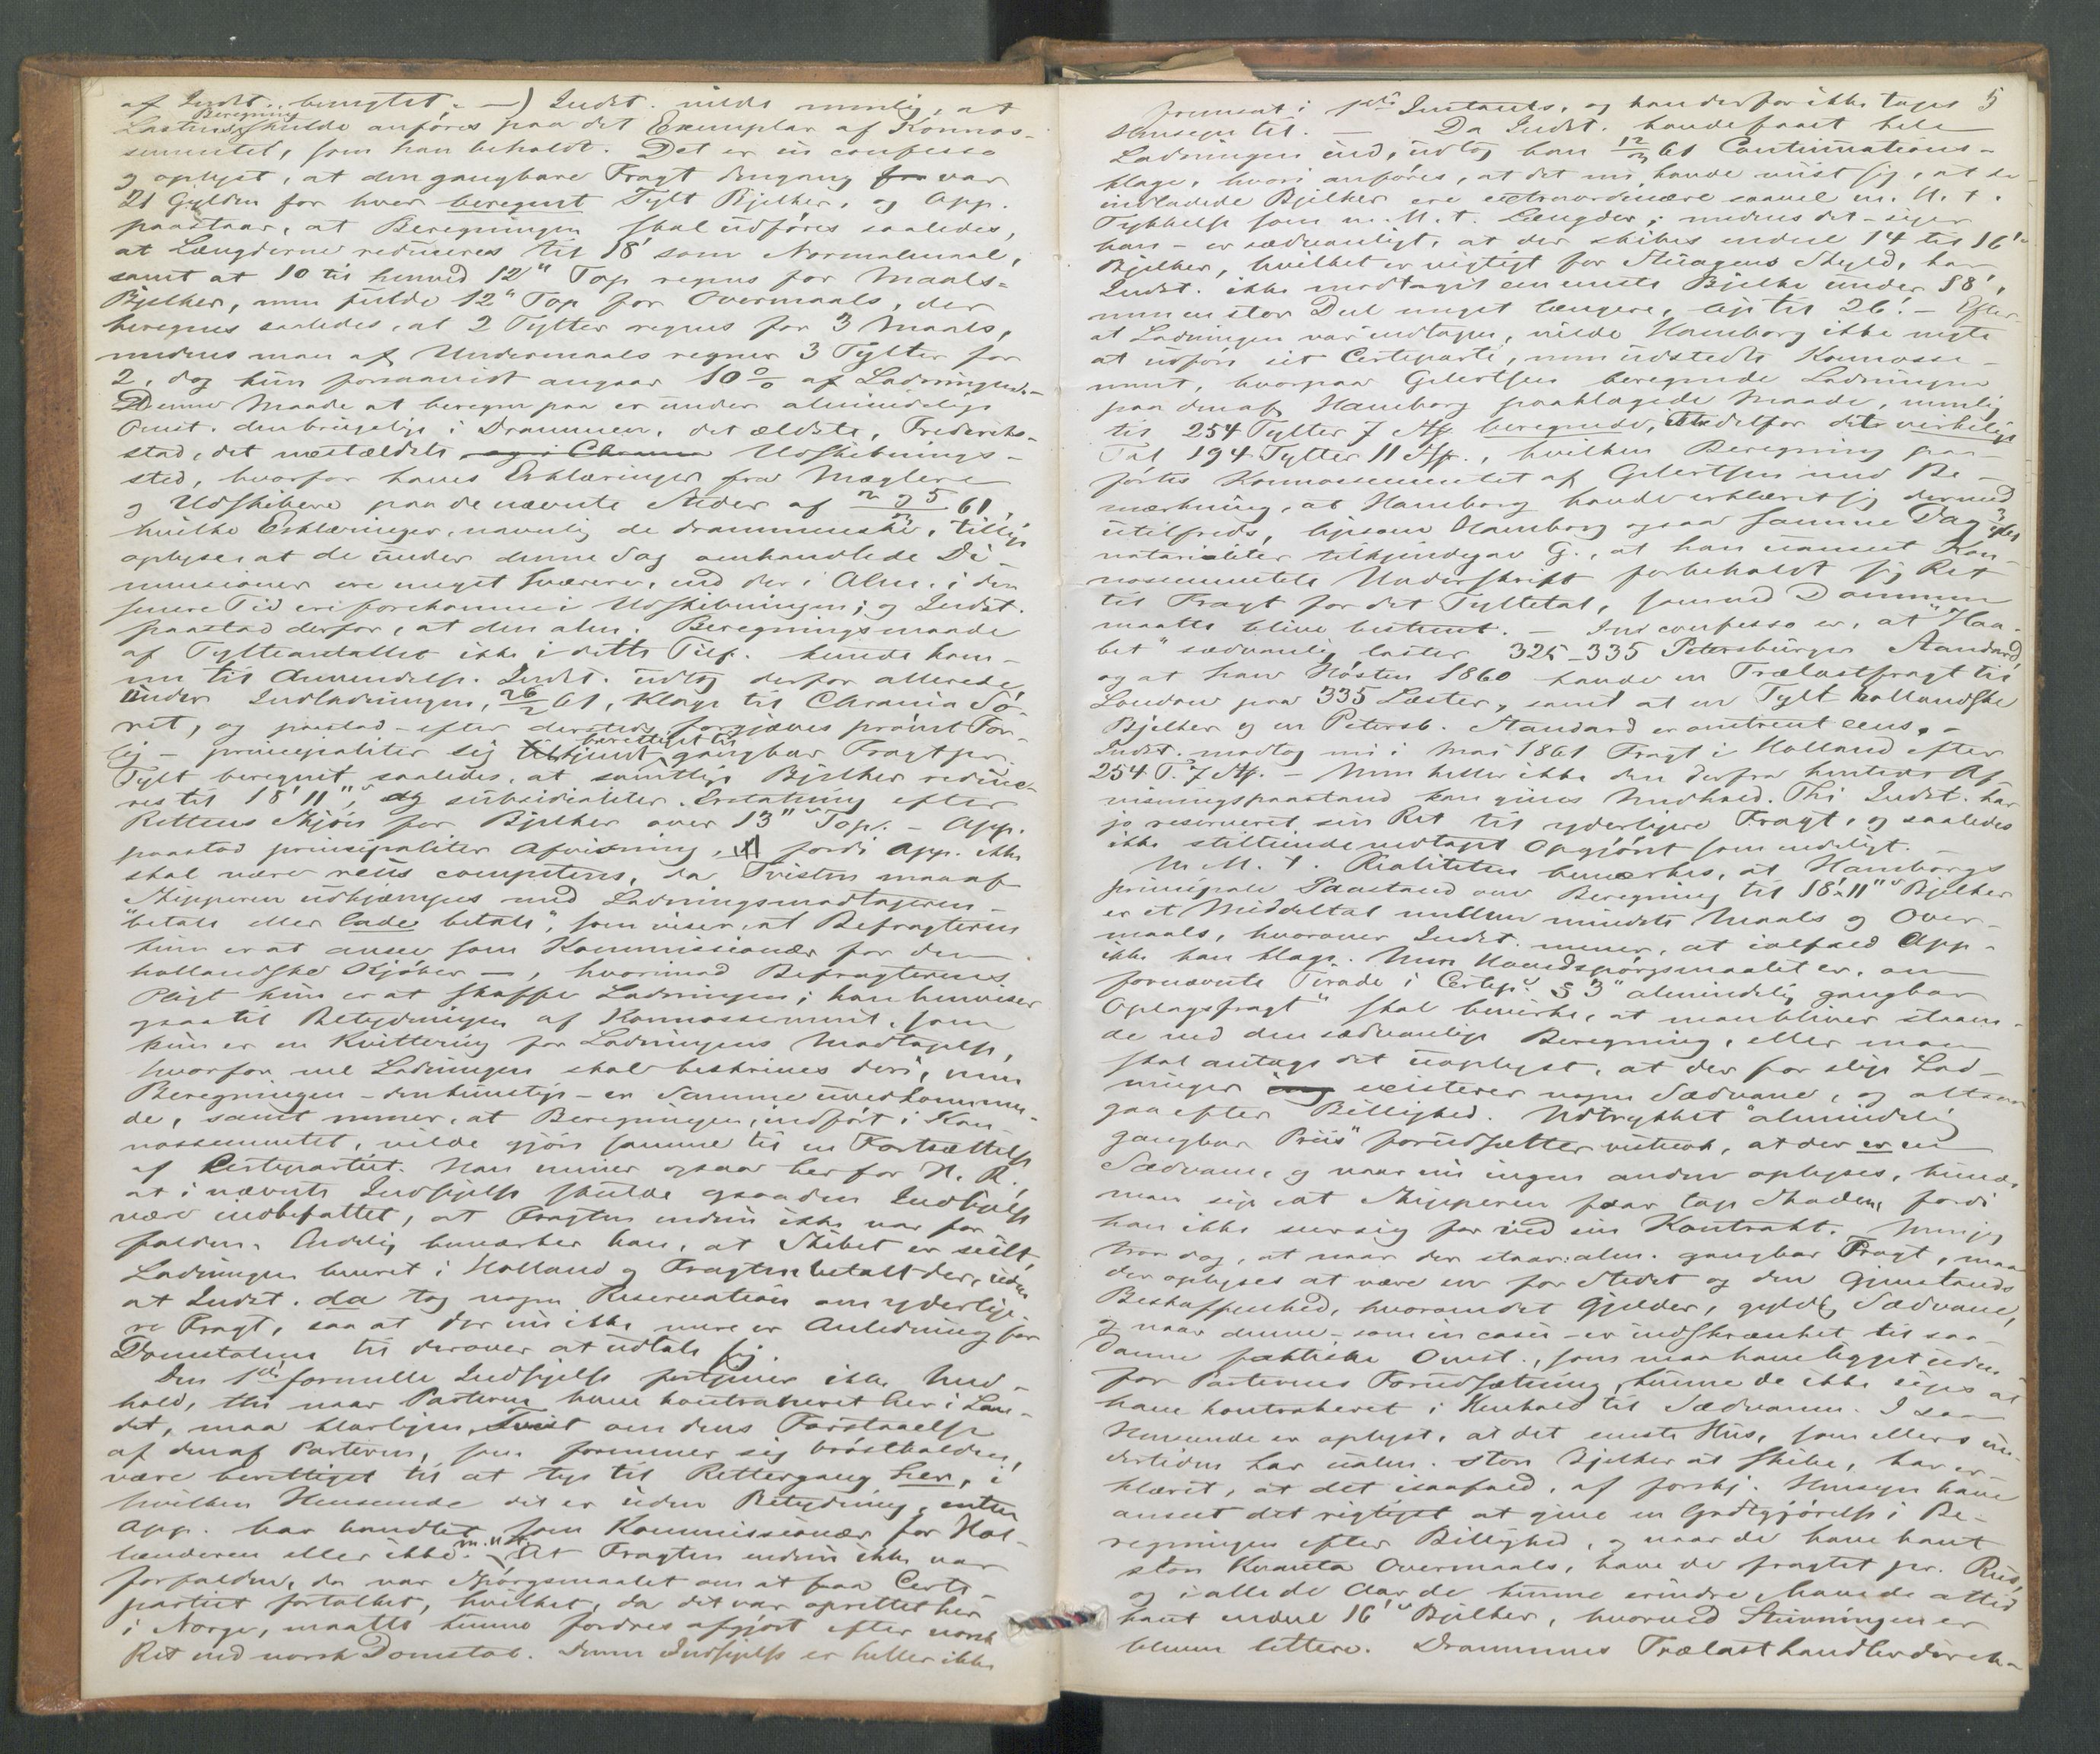 af Indst. benyttet. —) Indst. vilde nemlig, at
Beregning
Lastens skulde anføres paa det Exemplar af Konnos-
sementet, som han beholdt. Det er in confesso
og oplyst, at den gangbare Fragt dengang var
21 Gylden for hver beregnet Tylt Bjelker, og App.
paastaar, at Beregningen skal udføres saaledes,
at Længderne reduceres til 18' som Normalmaal,
samt at 10 til henved 12" Top regnes for Maals-
Bjelker, men fulde 12" Top for Overmaals, der
beregnes saaledes, at 2 Tylter regnes for 3 Maals,
medens man af Undermaals regner 3 Tylter for
2, dog kun forsaavidt angaar 10 % af Ladningen. -
Denne Maade at beregne paa er under almindelige
Omst. den brugelige i Drammen, det ældste, Frederiks-
stad, det næstældste og i Chrania Udskibnings-
sted, hvorfor haves Erklæringer fra Mæglere
og Udskibere paa de nævnte Steder af 61,
hvilke Erklæringer, navnlig de drammenske, tillige
oplyse, at de under denne Sag omhandlede Di-
mensioner ere meget sværere, end der i Alm. i den
senere Tid ere forekomne i Udskibningen; og Indst.
paastod derfor, at den alm. Beregningsmaade
af Tylteantallet ikke i dette Tilf. kunde kom-
me til Anvendelse. Indst. udtog derfor allerede
under Indladningen, 26/2 61, Klage til Chrania Sø-
ret, og paastod - efter dersteds forgjæves prøvet For-
lig - principaliter sig tilkjendt berettiget til gangbar Fragt pr.
Tylt beregnet saaledes, at samtlige Bjelker reduce-
res til 18' 11", og subsidialiter Erstatning efter
Rettens Skjøn for Bjelker over 13" Top. - App.
paastod principaliter Afvisning, fordi App. ikke
skal være rette competens, da Tvisten maa af
Skipperen udkjæmpes med Ladningsmodtageren -
"betale eller lade betale", som viser, at Befragteren
kun er at ansee som Kommissionær for den
hollandske Kjøber —, hvorimod Befragterens
Pligt kun er at skaffe Ladningen; han henviser
ogsaa til Betydningen af Konnossement, som
kun er en Kvittering for Ladningens Modtagelse,
hvorfor vel Ladningen skal beskrives deri, men
Beregningen - den kunstige - er Samme uvedkommen-
de, samt mener, at Beregningen, indført i Kon-
nossementet, vilde gjøre samme til en Fortsættelse
af Certepartiet. Han mener ogsaa her for H. R.,
at i nævnte Indsigelse skulde ogsaa den Indsigelse
være indbefattet, at Fragten endnu ikke var for-
falden. Endelig bemærker han, at Skibet er seilt,
Ladningen leveret i Holland og Fragten betalt der, uden
at Indst. da tog nogen Reservation om yderlige-
re Fragt, saa at der nu ikke mere er Anledning for
Domstolene til derover at udtale sig.
Den 1ste formelle Indsigelse fortjener ikke Med-
hold, thi naar Parterne have kontraheret her i Lan-
det, maa klarligen Tvist om dens Forstaaelse
af den af Parterne, som formener sig brøstholden,
være berettiget til at tye til Rettergang her, i
hvilken Henseende det er uden Betydning, enten
App. har handlet som Kommissionær for Hol-
lænderen eller ikke. At Fragten endnu ikke var
forfalden, da var Spørgsmaalet om at faa Certe-
partiet fortolket, hvilket, da det var oprettet her
i Norge, maatte kunne fordres afgjort efter norsk
Ret ved norsk Domstol. Denne Indsigelse er heller ikke
5
fremsat i 1ste Instants, og kan derfor ikke tages
Hensyn til. — Da Indst. havde faaet hele
Ladningen ind, udtog han 12/3 61 Continuations-
klage, hvori anføres, at det nu havde viist sig, at de
indladede Bjelker ere extraordinære saavel m. H. t.
Tykkelse som m. H. t. Længder; medens det - siger
han - er sædvanligt, at der skibes endeel 14 til 16'
Bjelker, hvilket er vigtigt for Stuagens Skyld, har
Indst. ikke modtaget een eneste Bjelke under 18',
men en stor Deel meget længere, lige til 26'. - Efter
at Ladningen var indtagen, vilde Hamborg ikke negte
at udføre sit Certeparti, men udstedte Konnosse-
ment, hvorpaa Gilertsen beregnede Ladningen
paa den af Hamborg paaklagede Maade, nemlig
til 254 Tylter 7 Stk. beregnede, istedetfor det virkelige
Tal 194 Tylter 11 Stk., hvilken Beregning paa-
førtes Konnossementet af Gilertsen med Be-
mærkning, at Hamborg havde erklæret sig dermed
utilfreds, ligesom Hamborg ogsaa samme Dag
notarialiter tilkjendegav G., at han uanseet Kon-
nossementets Underskrift forbeholdt sig Ret
til Fragt for det Tyltetal, som ved Dommen
maatte blive bestemt. - In confesso er, at "Haa-
bet" sædvanlig laster 325-335 Petersburger Standard,
og at han Høsten 1860 havde en Trælastfragt til
London paa 335 Læster, samt at en Tylt hollandske
Bjelker og en Petersb. Standard er omtrent eens. -
Indst. modtog nu i Mai 1861 Fragt i Holland efter
254 T. 7 Stk. - Men heller ikke den derfra hentede Af-
visningspaastand kan gives Medhold. Thi Indst. har
jo reserveret sin Ret til yderligere Fragt, og saaledes
ikke stiltiende vedtaget Opgjøret som endeligt.
M. H. t. Realiteten bemærkes, at Hamborgs
principale Paastand om Beregning til 18' 11" Bjelker
er et Middeltal mellem mindste Maals og Over-
maals, hvorover Indst. mener, at ialfald App.
ikke kan klage. Men Hovedspørgsmaalet er, om
fornævnte Tirade i Certep. § 3 "almindelig gangbar
Oplagsfragt" skal bevirke, at man bliver staaen-
de ved den sædvanlige Beregning, eller man
skal antage det uoplyst, at der for slige Lad-
ninger existerer nogen Sædvane, og altsaa
gaa efter Billighed. Udtrykket "almindelig
gangbar Priis" forudsætter vistnok, at der er en
Sædvane, og naar nu ingen anden oplyses, kunde
man sige at Skipperen faar tage Skaden, fordi
han ikke saae sig for ved sin Kontrakt. Men jeg
tror dog, at naar der staar: alm. gangbar Fragt, maa
der oplyses at være en for Stedet og den Gjenstands
Beskaffenhed, hvorom det gjælder, gyldig Sædvane,
og naar denne - som in casu - er indskrænket til saa-
danne faktiske Omst., som maa have ligget uden-
for Parternes Forudsætning, kunne de ikke siges at
have kontraheret i Henhold til Sædvanen. I saa
Henseende er oplyst, at det eneste Hus, som ellers un-
dertiden har ualm. store Bjelker at skibe, har er-
klæret, at det isaafald, af forskj. Hensyn have
anseet det rigtigst at give en Godtgjørelse i Be-
regningen efter Billighed, og naar de have havt
store Kvanta Overmaals, have de fragtet pr. Reis,
og i alle de Aar de kunne erindre, have de altid
havt endeel 16' Bjelker, hvorved Stuvningen er
bleven lettere. Drammens Trælasthandlerdirek-